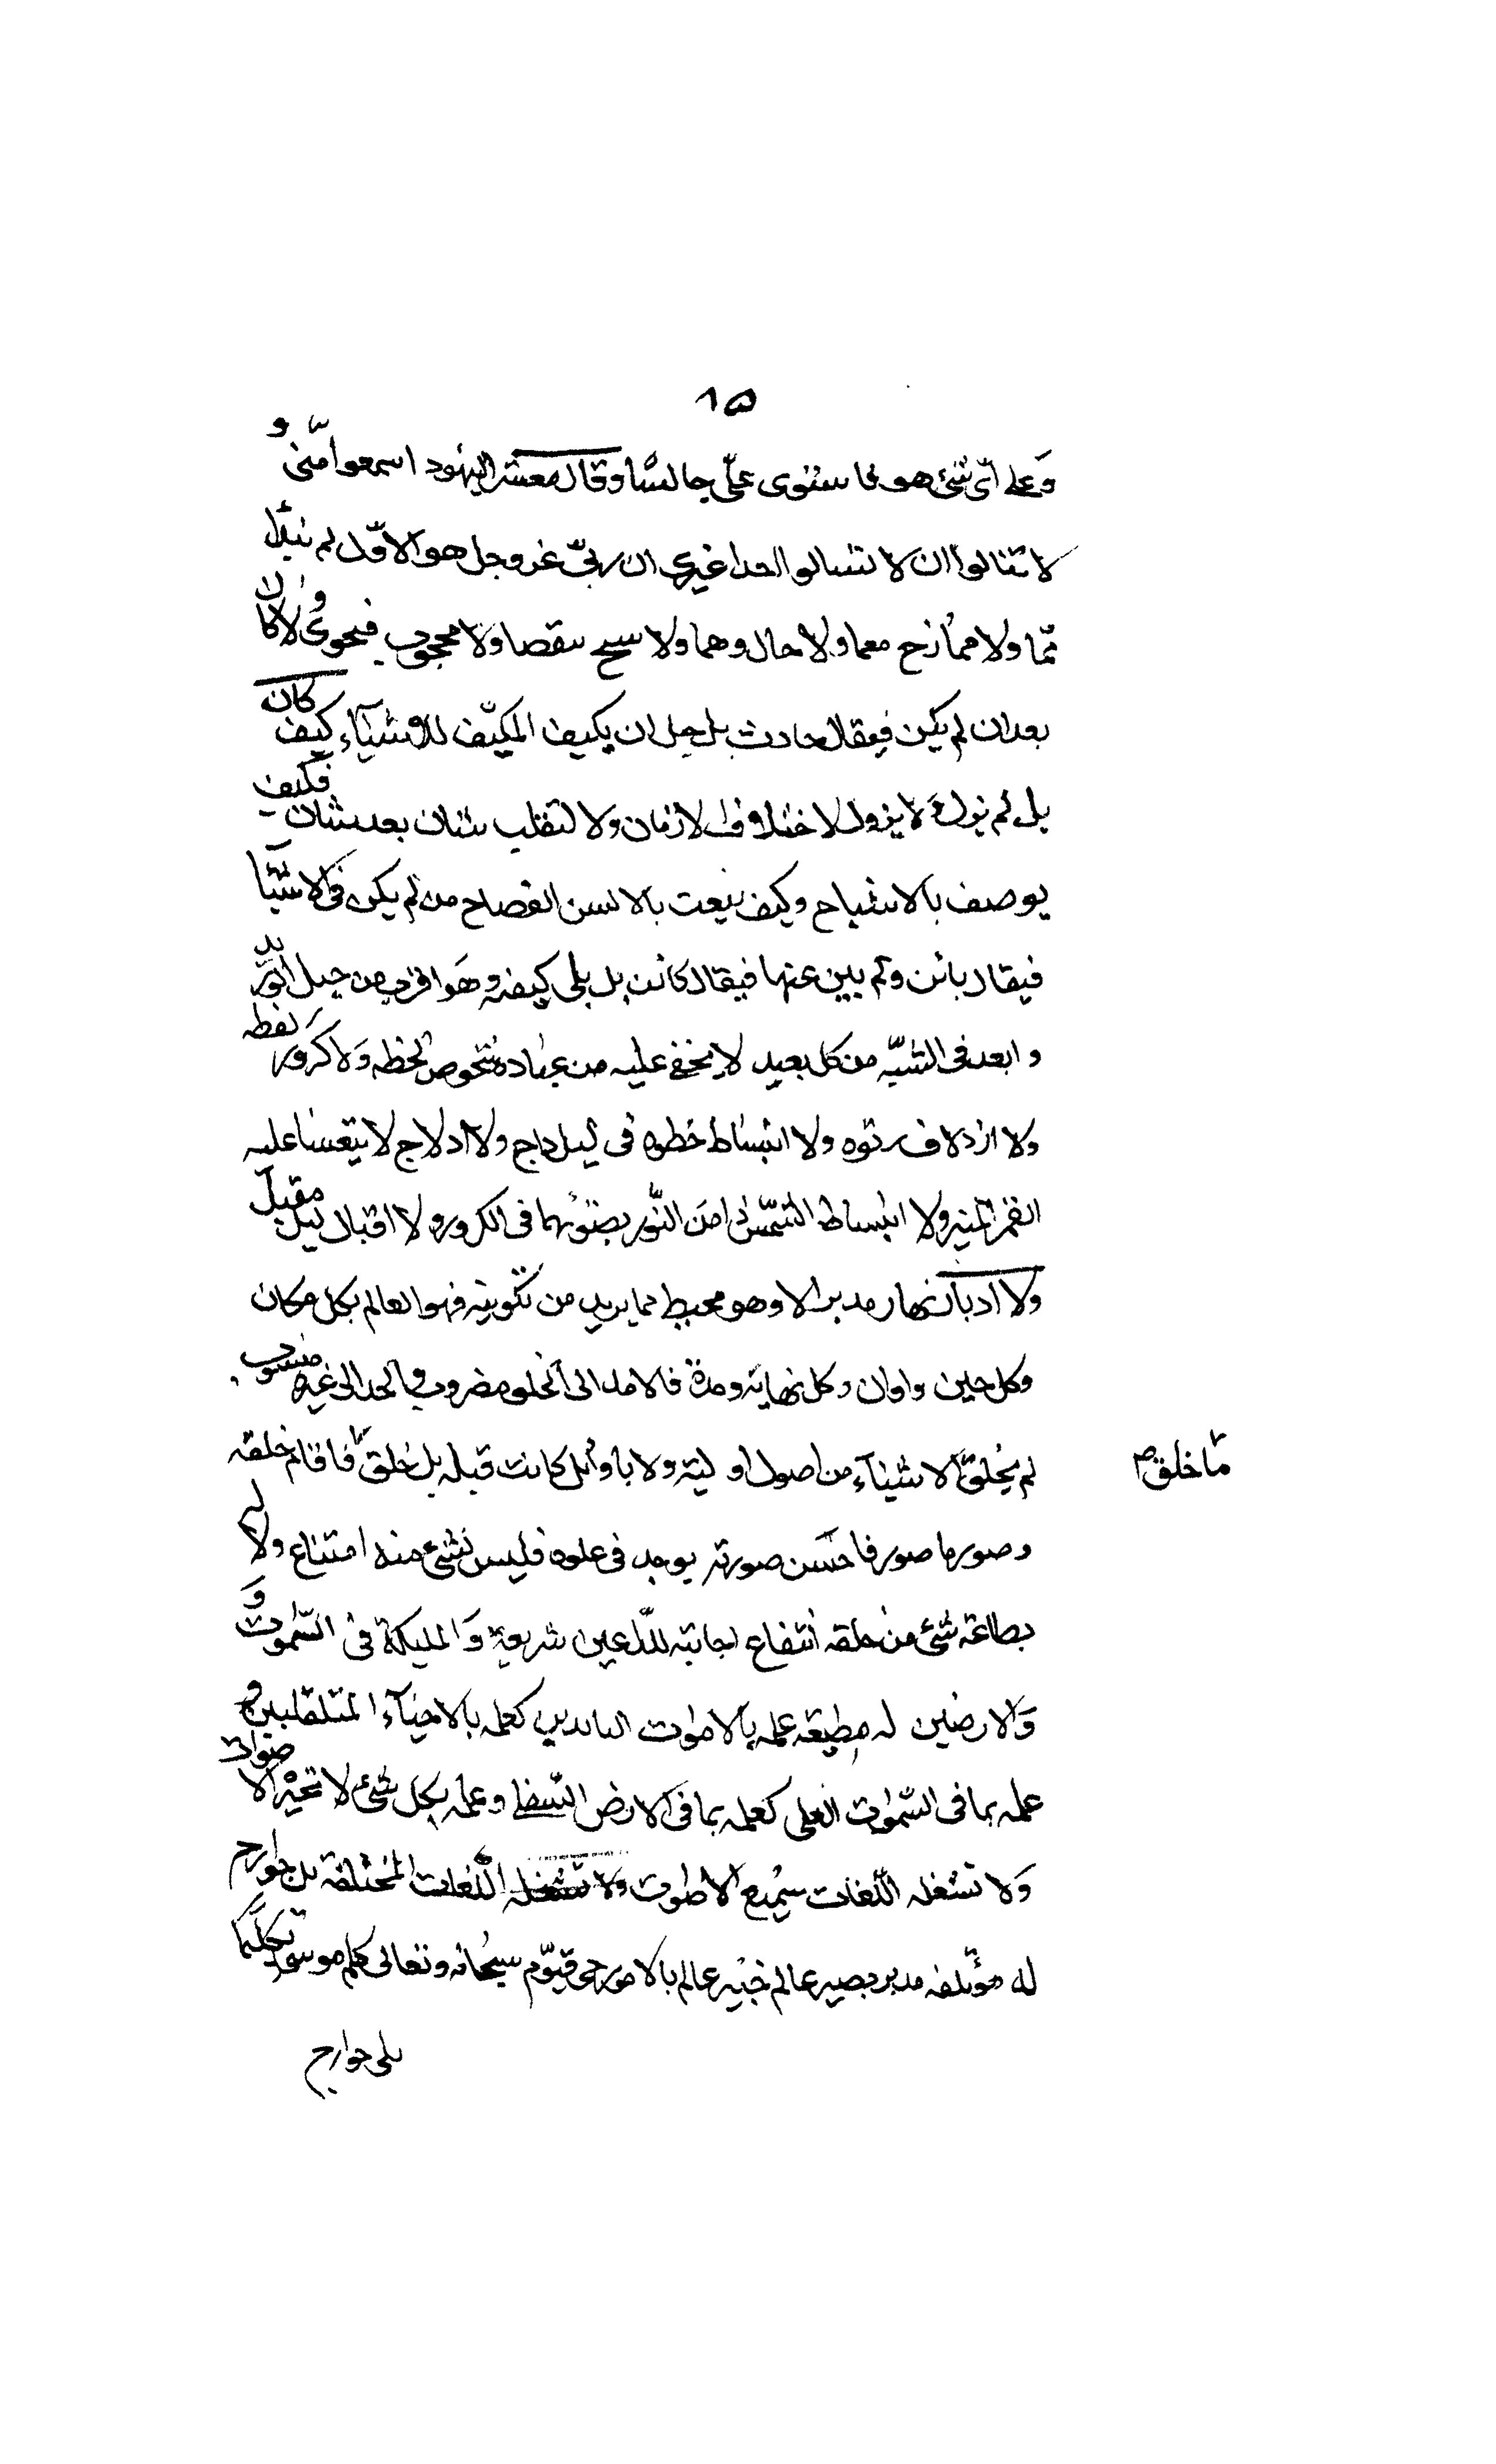 ١٥
وَعلے اىّ شئ هو فاستوى علىّ جالسًا وقال معشر اليهود اسمعوا منّى و
لا تبالوا ان لا تسالوا احدا غيرى ان ربّى عز وجل هو الاوّل لم يبد
ممّا ولا ممازح معما ولا حال وهما ولا سبح ولا محجوب فيحوى ولا كان
بعد ان لم يكن فيقال حادث بل جل ان يكيف المكيّف للاشيآء كيف كان
بل لم يزل وَلا يزول لاختلاف الازمان ولا لتقلب شان بعد شان فكيف
يوصف بالاشباح وكيف ينعت بالالسن الفصاح من لم يكن فى الاشيآء
فيقال بائن ولم يبين عنها فيقال كائن بل بلى كيفه وهَو اقرب من حبل الوريد
وابعد فى الشبّه من كل بعيد لا يخفى عليه من عباده شخوص لحظه وَلا كرور لفظه
ولا ازدلاف رتوه ولا انبساط خطوه فى ليل داج ولا ادلاج لا يتغسا عليه
القمر المنير ولا انبساط الشمّس ذا من النّور بضوئهما فى الكرور ولا اقبال ليل مقبل
ولا ادبار نهار مدبر الا وهو محيط مما يريد من تكوينه فهو العالم بكل مكان
وكل حين واوان وكل نهاية ومدة فالامد الى الخلق مضروب والحد الى غيره منسوب
لم يخلق الاشيآء من اصول اولية ولا باوائل كانت قبله بل خلق فاقام خلقه
ما خلق ص
وصور ما صور فاحسَن صورته يوجد فى علوه فليس لشئ منه امتناع ولا له
بطاعة شئ من خلقه انتفاع اجابته للدّاعين سريعة وَالمليكة فى السّموٰت وَ
وَالارضين له مطيعه علمه بالاموٰت البايدين كعلمه بالاحيآء المتقلبين و
علمه بما فى السّموٰت العلى كعلمه بما فى الارض السّفلے وعلمه بكل شئ لا تحيره الاصوات
وَلا تشغله اللّغات سميع الاصوٰت ولا تشغله اللّغات المختلفة بل جوارح
له مؤتلفه مدبر بصير عالم خبير عالم بالامور حى قيّوم سبحانه وتعالى كلم موسى تكليما
بلى جوارح